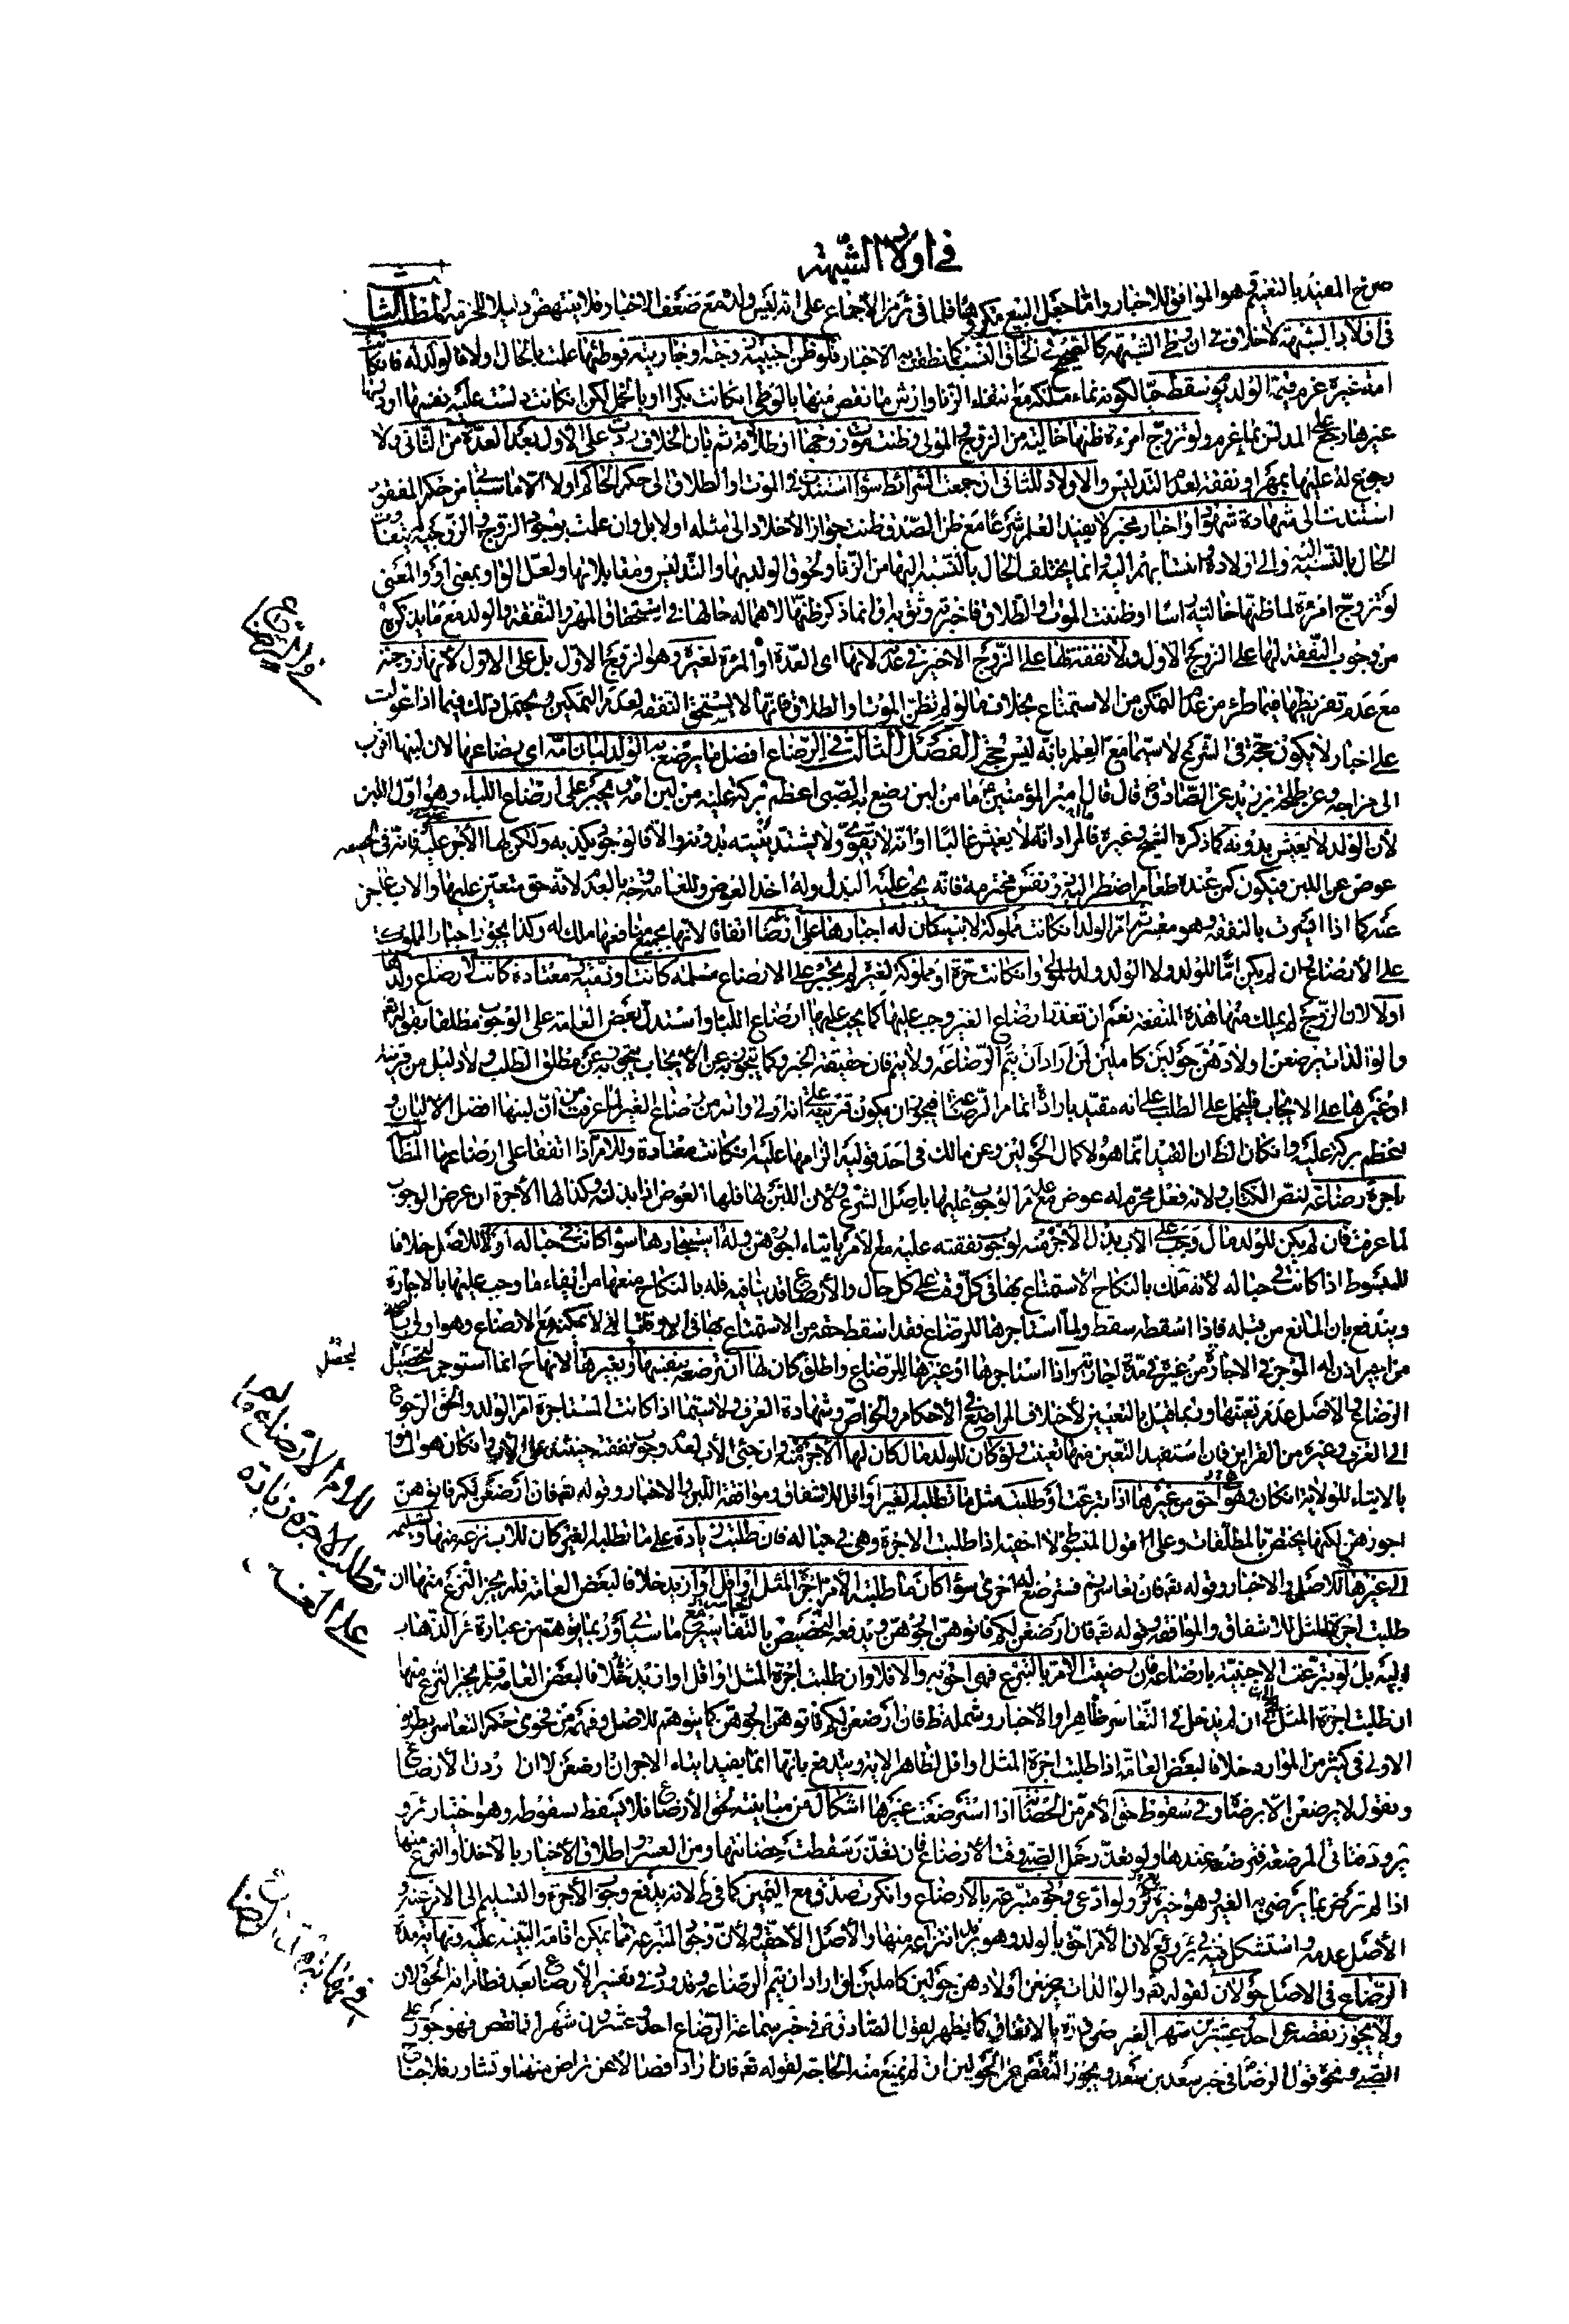 في اولاد الشبهة
صرح المفيد بالتغيير وهو الموافق للاخبار وانما جعل البيع مكروها فلما في من الاجماع على انه ليس ولده مع ضعف الاخبار فلا ينتهض دليلا للحرمة المطلب الثالث
في اولاد الشبهة لا خلاف في ان وطئ الشبهة كالصحيح في الحاق النسب كما نطقت به الاخبار فلو ظن اجنبية زوجته او جاريته فوطئها علمت بالحال ولا فالولد له فان كانت
امة غيره غرم قيمة الولد يوم سقط حيا لكونه نماء ملكه مع انتفاء الزنا وارش ما نقص منها بالوطي ان كانت بكرا او بالحمل لكن ان كانت دلست عليه نفسها او دلسها
غيرها رجع على المدلس بما غرم ولو تزوج امرءة ظنها خالية من الزوج المولى وظنت موت زوجها او طلاقه ثم بان الخلاف ردت على الاول بعد العدة من الثاني ولا
رجوع له عليها بمهر او نفقة لعدم التدليس والاولاد للثاني ان جمعت الشرائط سواء استندت في الموت او الطلاق الى حكم الحاكم او لا الا ما سيأتي من حكم المفقود
استندت الى شهادة شهود او اخبار مخبر لا يفيد العلم شرعا مع ظن الصدق وظنت جواز الاخلاد الى مثله او لا بل وان علمت بوجود الزوج والزوجية بينهما
الحال بالنسبة الى اولاده انتسابهم اليه وانما يختلف الحال بالنسبة اليها من الزنا ولحوق الولد بها والتدليس ومقابلاتها ولعل الواو بمعنى او والمعنى
لو تزوج امرءة لما ظنها خالية اساسا او ظنت الموت او الطلاق فاخبرته وثق به وانما ذكر ظنها لاهماله حالها في استحقاق المهر والنفقة والولد مع ما يذكره
من وجوب النفقة لها على الزوج الاول ولا نفقة لها على الزوج الاخير في عدته لانها اي العدة او المرءة لغيره وهو الزوج الاول بل على الاول لانها زوجته
مع عدم تفريطها فيما طرء من عدم التمكن من الاستمتاع بخلاف ما لو لم تظن الموت او الطلاق فانها لا يستحق النفقة لعدم التمكين ويحتمل ذلك فيما اذا عولت
على اخبار لا يكون حجة في الشرع لا سيما مع العلم بانه ليس بحجة الفصل الثالث في الرضاع افضل ما يرضع به الولد لبان امه اي رضاعها لان لبنها اقرب
الى مزاجه وعن طلحة بن زيد عن الصادق ع قال قال امير المؤمنين ع ما من لبن رضع به الصبي اعظم بركة عليه من لبن امه ويجبر على ارضاع اللباء وهو اول اللبن
لان الولد لا يعيش بدونه كما ذكره الشيخ وغيره فالمراد انه لا يعيش غالبا او انه لا يقوى ولا يشتد بنيته بدونه والا فالوجود يكذبه ولكن لها الاجر عليه فانه في الحقيقة
عوض عن اللبن فيكون كمن عنده طعام اضطر اليه ذو نفس محترمة فانه يجب عليه البذل وله اخذ العوض وللعامة وجه بالعدم لانه حق متعين عليها والاب عاجز
عنه كما اذا ايسرت بالنفقة وهو معسر ثم ام الولد ان كانت مملوكة لابيه كان له اجبارها على ارضاعه اتفاقا لانها بجميع منافعها ملك له وكذا يجوز اجبار المملوكة
على الارضاع وان لم يكن اما للولد ولا الولد ولد المولى وان كانت حرة او مملوكة لغيره لم يجبر على الارضاع مسلمة كانت او ذمية معتادة كانت لارضاع ولدها
او لا لان الزوج لم يملك منها هذه المنفعة نعم ان تعذر ارضاع الغير وجب عليها كما يجب عليها ارضاع اللباء واستدل بعض العامة على الوجوب مطلقا بقوله تعالى
والوالدات يرضعن اولادهن حولين كاملين لمن اراد ان يتم الرضاعة ولا يتم فان حقيقته الخبر وكما يتجوز به عن الايجاب يتجوز به عن مطلق الطلب ولا دليل من قرينة
او غيرها على الايجاب فليحمل على الطلب على انه مقيد بارادة اتمام الرضاعة فيجوز ان يكون قرينة على انه اولى وانه من رضاع الغير لما عرفت من ان لبنها افضل الالبان و
اعظم بركة عليه وان كان الظ ان القيد انما هو لاكمال الحولين وعن مالك في احد قوليه الزامها عليه ان كانت معتادة وللام اذا اتفقا على ارضاعها المطالبة
باجرة رضاعه لنص الكتاب ولانه فعل محترم له عوض مع عدم الوجوب عليها باصل الشرع ولان اللبن لها فلها العوض اذا بذلته وكذا لها الاجرة ان عرض الوجوب
لما عرفت فان لم يكن للولد مال وجب على الاب بذل الاجرة منه لوجوب نفقته عليه مع الامر بايتاء اجورهن وله استيجارها سواء كانت في حباله او لا للاصل خلافا
للمبسوط اذا كانت في حباله لانه ملك بالنكاح الاستمتاع بها في كل وقت على كل حال والارضاع قد ينافيه فله بالنكاح منعها من ايفاء ما وجب عليها بالاجارة
ويندفع بان المانع من قبله فاذا اسقطه سقط ولما استاجرها للرضاع فقد اسقط حقه من الاستمتاع بها في الاوقات التي لا يمكنه مع الارضاع وهو اولى بالصحة
من اجير اذن له الموجر في الاجارة من غيره في مدة اجارته واذا استاجرها او غيرها للرضاع واطلق كان لها ان ترضعه بنفسها وبغيرها لانها ح انما استوجرت لتحصيل
الرضاع والاصل عدم تعينها وربما قيل بالتعيين لاختلاف المراضع في الاحكام والخواص وشهادة العرف ولا سيما اذا كانت المستاجرة ام الولد والحق الرجوع
الى العرف وغيره من القرائن فان استفيد التعين منها تعينت ولو كان للولد مال كان لها الاجر منه وان حيى الاب لعدم وجوب نفقته حينئذ على الاب وان كان هو المخاطب
بالايتاء للولاية ان كان وهي احق من غيرها اذا تبرعت او طلبت مثل ما تطلبه الغير او اقل للاشفاق وموافقة اللبن والاخبار وقوله تعه فان ارضعن لكم فاتوهن
اجورهن لكنها يختص بالمطلقات وعلى قول المبسوط لا احقية اذا طلبت الاجرة وهي في حباله فان طلبت زيادة على ما تطلبه الغير كان للاب نزعه منها وتسليمه
الى غيرها للاصل والاخبار وقوله تعه فان تعاسرتم فسترضع له اخرى سواء كان ما طلبته الام اجرة المثل او اقل او ازيد خلافا لبعض العامة فلم يجز النزع منها ان
طلبت اجرة المثل للاشفاق والموافقة وقوله تعه فان ارضعن لكم فاتوهن اجورهن ويدفعه التخصيص بالتعاسر مع ما سيأتي وربما يتوهم من عبارة ئر الذهاب
اليه بل لو تبرعت الاجنبية بارضاعه فان رضيت الام بالتبرع فهي احق به والا فلا وان طلبت اجرة المثل او اقل او ازيد خلافا لبعض العامة فلم يجز النزع منها
ان طلبت اجرة المثل ان لم يدخل في التعاسر ظاهرا والاخبار وشمله ظ فان ارضعن لكم فاتوهن اجورهن كما يتوهم للاصل وفهمه من فحوى حكم التعاسر بطريق
الاولى في كثير من الموارد خلافا لبعض العامة اذا طلبت اجرة المثل او اقل لظاهر الاية ويندفع بانها انما يفيد ايتاء الاجر ان ارضعن لا ان ردن الارضاع
ونقول لا يرضعن الا برضاه وفي سقوط حق الام من الحضانة اذا استرضعت غيرها اشكال من مباينته لحق الارضاع فلا يسقط بسقوطه وهو اختيار ئر و
وقت الارضاع فان تعذر سقطت حضانتها ومن العسر واطلاق الاخبار بالاخذ او النزع منها
اذا لم ترض بما يرضى به الغير وهو خيرة ولو ادعى وجود متبرعة بالارضاع وانكرت صدق مع اليمين كما في ط لانه يدفع وجوب الاجرة والتسليم الى الام عنه و
الاصل عدمه واستشكل فيه في يع لان الام احق بالولد وهو يريد انتزاعه منها والاصل الاحقية ولان وجود المتبرعة مما يمكن اقامة البينة عليه ونهاية مدة
الرضاع في الاصل حولان لقوله تعه والوالدات يرضعن اولادهن حولين كاملين لمن اراد ان يتم الرضاعة
ولا يجوز نقصه عن احد وعشرين شهرا لغير ضرورة بالاتفاق كما يظهر لقول الصادق ع في خبر سماعة الرضاع احد وعشرون شهرا فما نقص فهو جور على
الصبي ونحوه قول الرضا ع في خبر سعد بن سعد ويجوز النقص عن الحولين ان لم يمنع منه الحاجة لقوله تعه فان ارادا فصالا عن تراض منهما وتشاور فلا جناح
في الرضاع
لتحصل
للام الارضاع ما لم
تطلب الاجرة زيادة
على الغير
في نهاية الرضاع